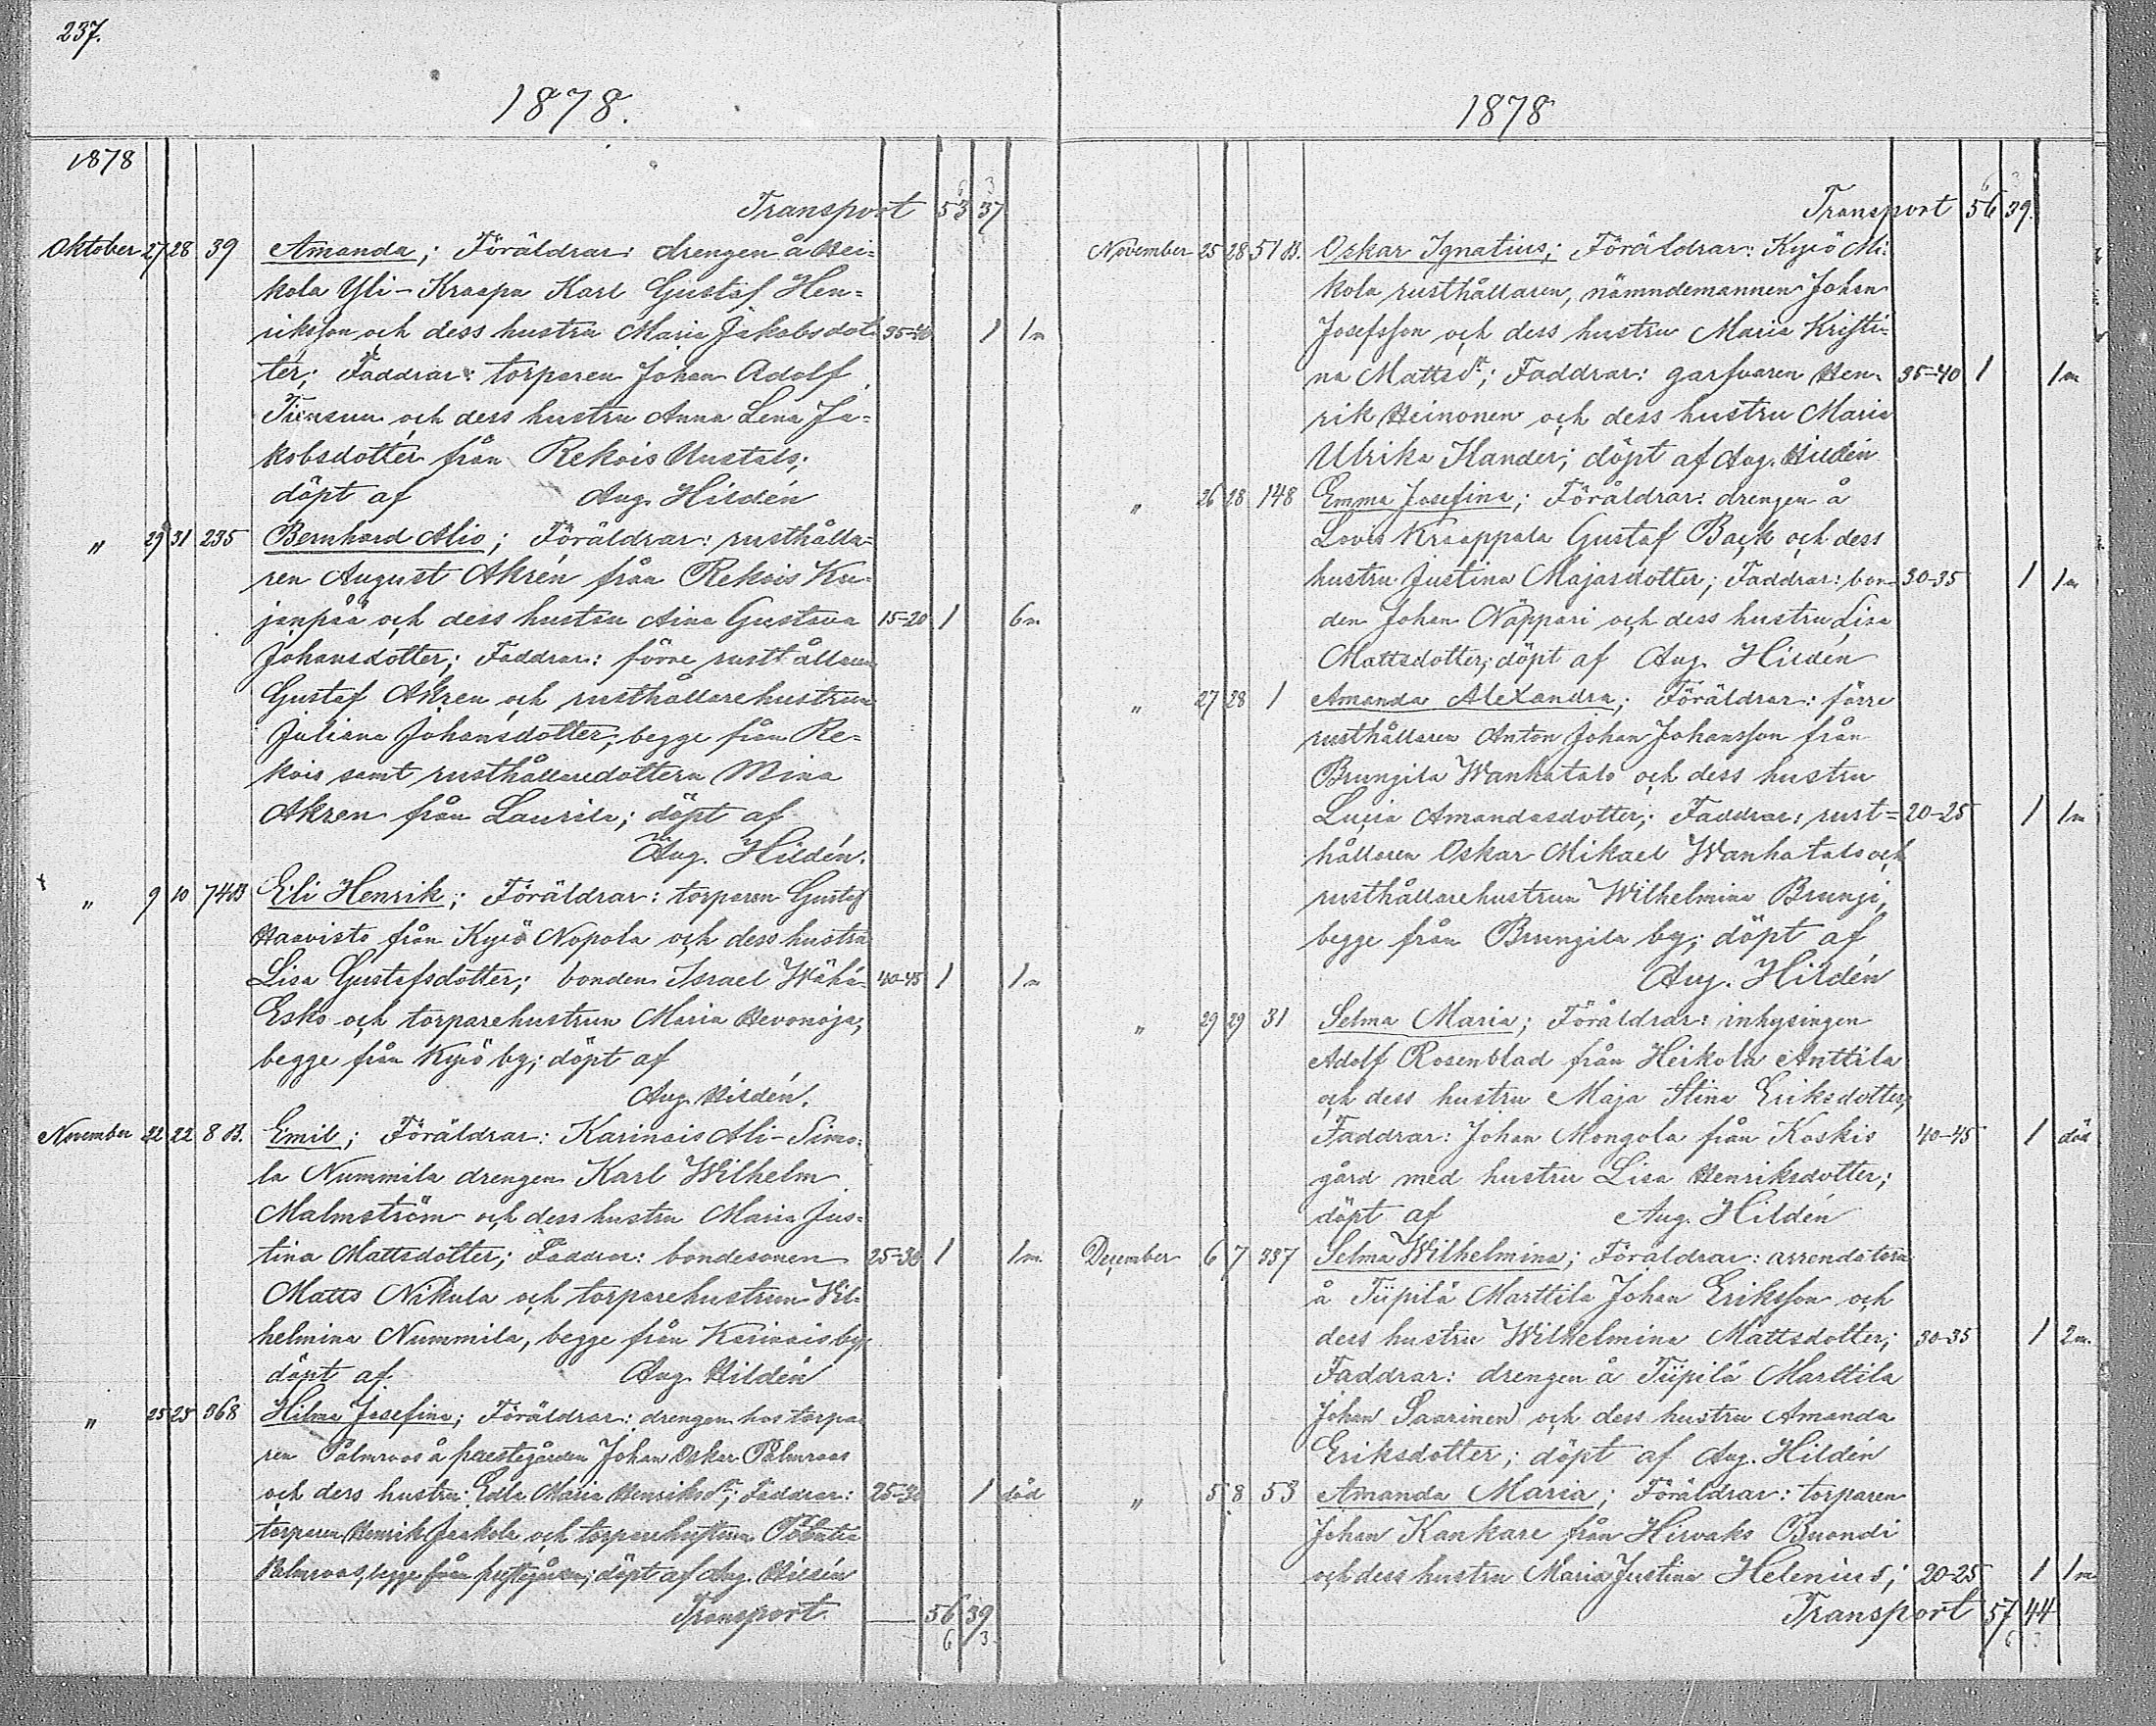 237.
1878.
1878
Transport 53 37
Oktober 27 28 39 Amanda; Föräldrar: drengen å Hei-
kola Yli-Kraapa Karl Gustaf Hen-
riksson och dess hustru Maria Jakobsdot- 35-40 1 1m
ter; Faddrar: torparen Johan Adolf
och dess hustru Anna Lena Ja-
kobsdotter från Rekois Uustalo;
döpt af Aug. Hildén
" 29 31 235 Bernhard Alio; Föräldrar: rusthålla-
ren August Akrén från Rekois Ku-
janpää och dess hustru Aina Gustava 15-20 1 6m
Johansdotter; Faddrar: förre rusthållaren
Gustaf Akren och rusthållarehustrun
Juliana Johansdotter, begge från Re-
kois samt rusthållaredottern Mina
Akren från Laurila; döpt af
Aug. Hildén.
" 9 10 74B Eli Henrik; Föräldrar: torparen Gustaf
Haavisto från Kyrö Nopola och dess hustru
Lisa Gustafsdotter; bonden Israel Wähä- 40-45 1 1m
Esko och torparehustrun Maria Hevonoja,
begge från Kyrö by; döpt af
Aug. Hildén.
November 22 22 8 B. Emil; Föräldrar: Karinais Ali-Simo-
la Nummila drengen Karl Wilhelm
Malmström och dess hustru Maria Jus-
tina Mattsdotter; Faddrar: bondesonen 25-30 1 1m.
Matts Nikula och torparehustrun Vil-
helmina Nummila, begge från Karinais by;
döpt af Aug. Hildén
" 25 25 368 Hilma Josefina; Föräldrar: drengen hos torpa-
ren Palmroos å prestegården Johan Oskar Palmroos
och dess hustru Edla Maria Henriksdr; Faddrar: 25-30 1 död
torparen Henrik Jaakola och torparehustrun
Palmroos, begge från prestgården; döpt af Aug. Hildén
Transport 56 39
6 3
1878
Transport 56 39.
November 25 28 51 B. Oskar Ignatius; Föräldrar: Kyrö Mi-
kola rusthållaren, nämndemannen Johan
Josefsson och dess hustru Maria Kristi-
na Mattsdr; Faddrar: garfvaren Hen- 35-40 1 1m
rik Heinonen och dess hustru Maria
Ulrika Ilander; döpt af Aug. Hildén
" 26 28 148 Emma Josefina; Föräldrar: drengen å
Lovis Kraappala Gustaf Back och dess
hustru Justina Majasdotter; Faddrar: bon- 30-35 1 1m
den Johan Näppari och dess hustru Lisa
Mattsdotter; döpt af Aug. Hildén
" 27 28 1 Amanda Alexandra; Föräldrar: förre
rusthållaren Anton Johan Johansson från
Brungila Wanhatalo och dess hustru
Lucia Amandasdotter; Faddrar: rust- 20-25 1 1m
hållaren Oskar Mikael Wanhatalo och
rusthållarehustrun Wilhelmina Brungi,
begge från Brungila by; döpt af
Aug. Hildén
" 29 29 31 Selma Maria; Föräldrar: inhysingen
Adolf Rosenblad från Heikola Anttila
och dess hustru Maja Stina Eriksdotter;
Faddrar: Johan Mongola från Koskis 40-45 1 död
gård med hustru Lisa Henriksdotter;
döpt af Aug. Hildén
December 6 7 337 Selma Wilhelmina; Föräldrar: arrendatorn
å Tiipilä Marttila Johan Eriksson och
dess hustru Wilhelmina Mattsdotter; 30-35 1 2m.
Faddrar: drengen å Tiipilä Marttila
Johan Saarinen och dess hustru Amanda
Eriksdotter; döpt af Aug. Hildén
" 5 8 53 Amanda Maria; Föräldrar: torparen
Johan Kankare från Hirvaks Buondi
och dess hustru Maria Justina Helenius; 20-25 1 1m
Transport 57 44
6 3